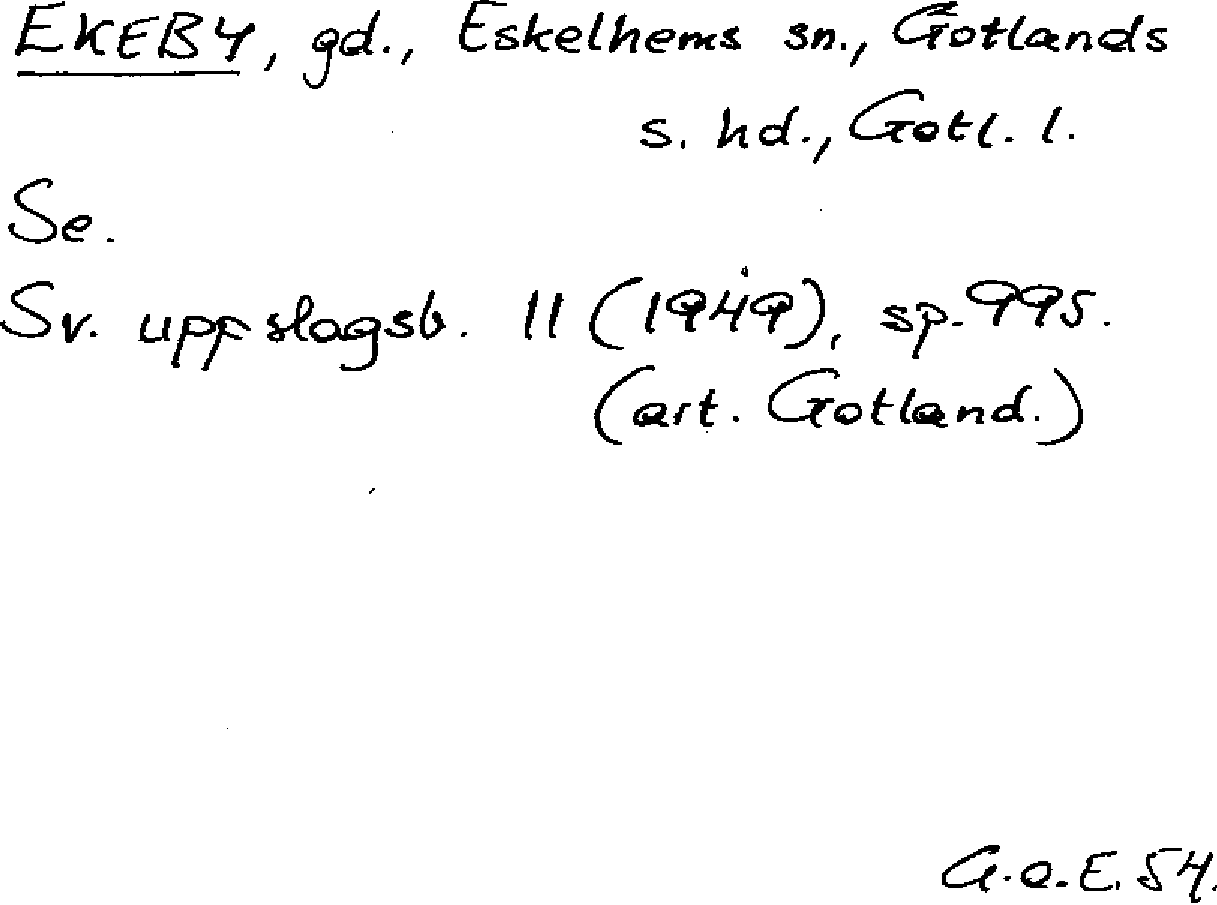 EKEBY, gd., Eskelhems sn., Gotlands
s. hd., Gotl. l.
Se.
Sv. uppslagsb. 11 (1949), sp. 995.
(art. Gotland.)
G.a.E. 54.